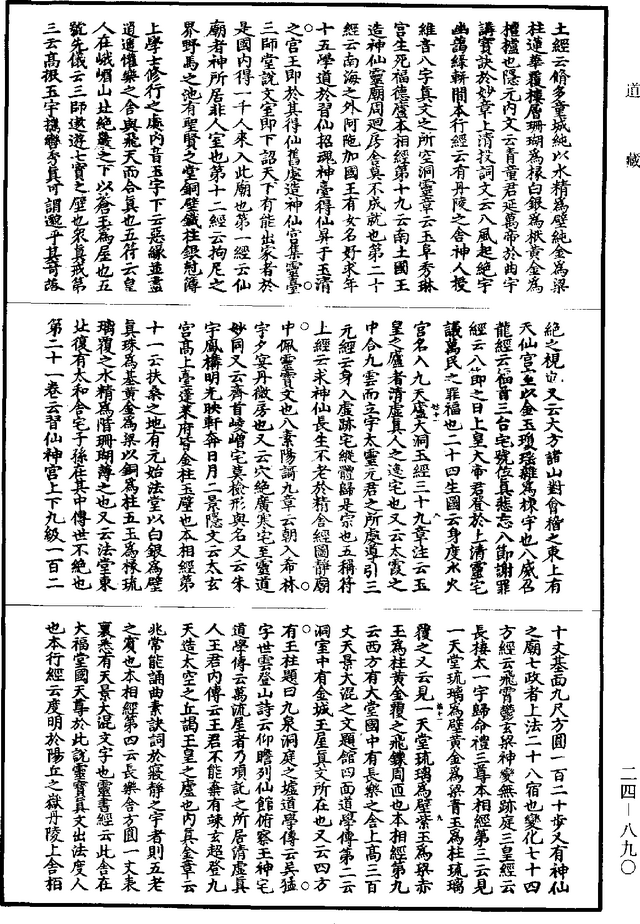 道藏
土經云脩多童城純以水精為壁純金為梁
柱蓮華覆樓層珊瑚為椽白銀為栿黃金為
檀櫨也隱元內文云青童君延萬帝於曲宇
講寶訣於妙章上清投詞文云八風起絕宇
幽藹緑軿間本行經云有丹陵之舍神人授
維音八字真文之所空洞靈章云玉阜秀琳
宮生死福德盧本相經第十九云南土國王
造神仙靈廟周迴房舍莫不成就也第二十
經云南海之外阿陁加國王有女名好求年
十五學道於習仙招魂神臺得仙昇于玉清
之宮王即於其得仙舊處造神仙宮集靈臺
三師堂說文室即下詔天下有能出家者於
是國內得一千人來入此廟也第一經云仙
廟者神所居非人室也第十二經云拘尼之
界野馬之池有聖賢之堂銅壁鐵柱銀𣝛簿
上學士修行之處內音玉字下云惡緣並盡
逍遥懽樂之舍與飛天而合真也五符云皇
人在峨嵋山北絕巖之下以蒼玉為屋也五
號先儀云三師遨遊七寶之壁也衆真戒第
三云高棂玉宇攜齊秀真可謂邈乎其奇落
絶之視也又云大方諸山對會稽之東上有
天仙宮室以金玉瓊瑤雜為棟宇也八威召
龍經云福首三台宅號位真悲忘八節謝罪
經云八節之日上皇大帝君登於上清靈宅
議萬民之罪福也二十四生圖云身度水火
宮名入九天廬大洞玉經三十九章注云玉
皇之廬者清虛真人之遠宅也又云太霞之
中合九雲而立宇太靈元君之所處導引三
元經云身入虛跡宅縱體歸是宗也五稱符
上經云求神仙長生不老於精舍經圖靜廟
中佩靈寶文也八素陽謌九章云朝入希林
宇夕宴丹微房也又云穴絕廣寒宅至靈道
妙同又云齊首崚嶒宅莫檢形與名又云朱
宇鳳構明光映軿奔日月二景隱文云太玄
宮高上臺蓬萊府皆金柱玉壁也本相經第
十一云扶桑之地有元始法堂以白銀為壁
真珠為基黃金為梁以銅為柱五玉為椽琉
璃覆之水精為階珊瑚薄之也又云法堂東
北復有太和合宅子孫在其中傳世不絕也
第二十一卷云習仙神宮上下九級一百二
十丈基面九尺方圓一百二十步又有神仙
之廟七政者上法二十八宿也變化七十四
方經云飛霄鬱玄梁神變無跡庭三皇經云
長棲太一宇歸命禮三尊本相經第三云見
一天堂琉璃為壁黃金為梁青玉為柱琉璃
覆之又云見一天堂琉璃為壁紫玉為梁赤
玉為柱黃金覆之飛鏤周匝也本相經第九
云西方有大堂國中有長樂之舍上高三百
丈天景大混之文題館四面道學傳第二云
洞室中有金城玉屋真文所在也又云四方
有玉柱題曰九泉洞庭之墟道學傳云吳猛
字世雲登山詩云仰瞻列仙館俯察王神宅
道學傳云萬流屋者乃項託之所居清虛真
人王君內傳云王君不能棄有竦玄超登九
天造太空之丘謁玉皇之廬也內真金章云
兆常能誦曲素訣詞於寂靜之宇者則五老
之賓也本相經第四云長樂舍方圓一丈表
裏悉有天景大混文字也靈書經云此舍在
大福堂國天尊於此說靈寶真文出法度人
也本行經云度明於陽丘之嶽丹陵上舍栢
二四—八九〇